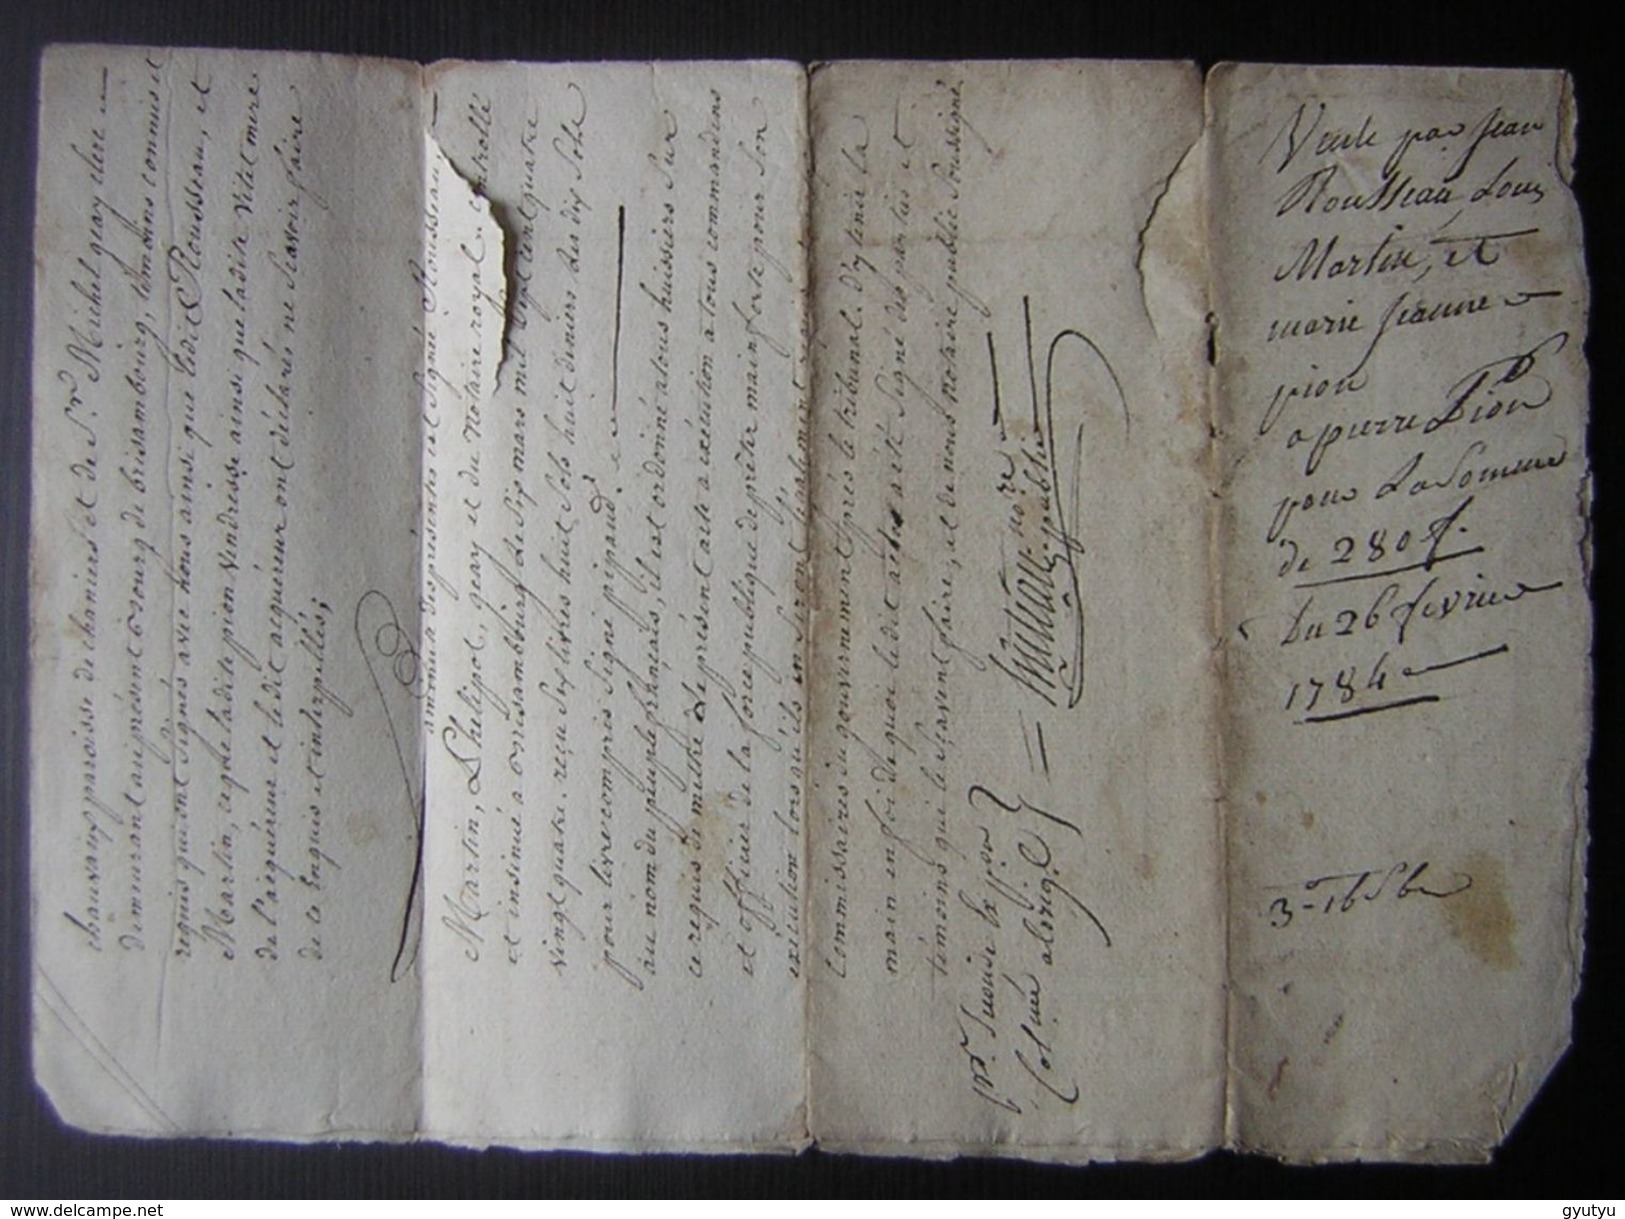 chauvains paroisse de chaniers et de Sr. Michel geay clerc —
demeurant au présent o sourg de brisambourg, temoins connuis et
requis qui ont signés avec nous ainsi que ledit Rousseau, et
Martin, ce que ladite pion Vendresse ainsi que ladite Vitet mere
de l'aiquéreur et le dit acquéreur ont déclarés ne scavoir faire
de ce Enquis et interpellés;
a minutte des présentes est signée Rousseau
Martin, Phelipot, geay et du Notaire royal. controllé
et insinué a brisambourg le six mars mil sept cent quatre
vingt quatre. reçu six livres huit sols huit deniers des dix sols
pour livre compris signé pipaud.
au nom du peuple français, il est ordonné a tous huissiers sur
ce requis de mettre le présent acte a exécution a tous commandens
et officier de la force publique de prêter main forte pour son
exécution lors qu'ils en seront légalement requis
Commissaires du gouvernement près le tribunal. d'y tenir la
main en foi de quoi le dit acte a été signé des parties et
témoins qui le scavent faire, et de nous notaire public soussigné.
no.re
public
Vente par Jean
Rousseau, Louis
Martin, et
marie jeanne
pion
a pierre Pion
pour La Somme
de 280 f.
Du 26 fevrier
1784
gyutyu
www.delcampe.net